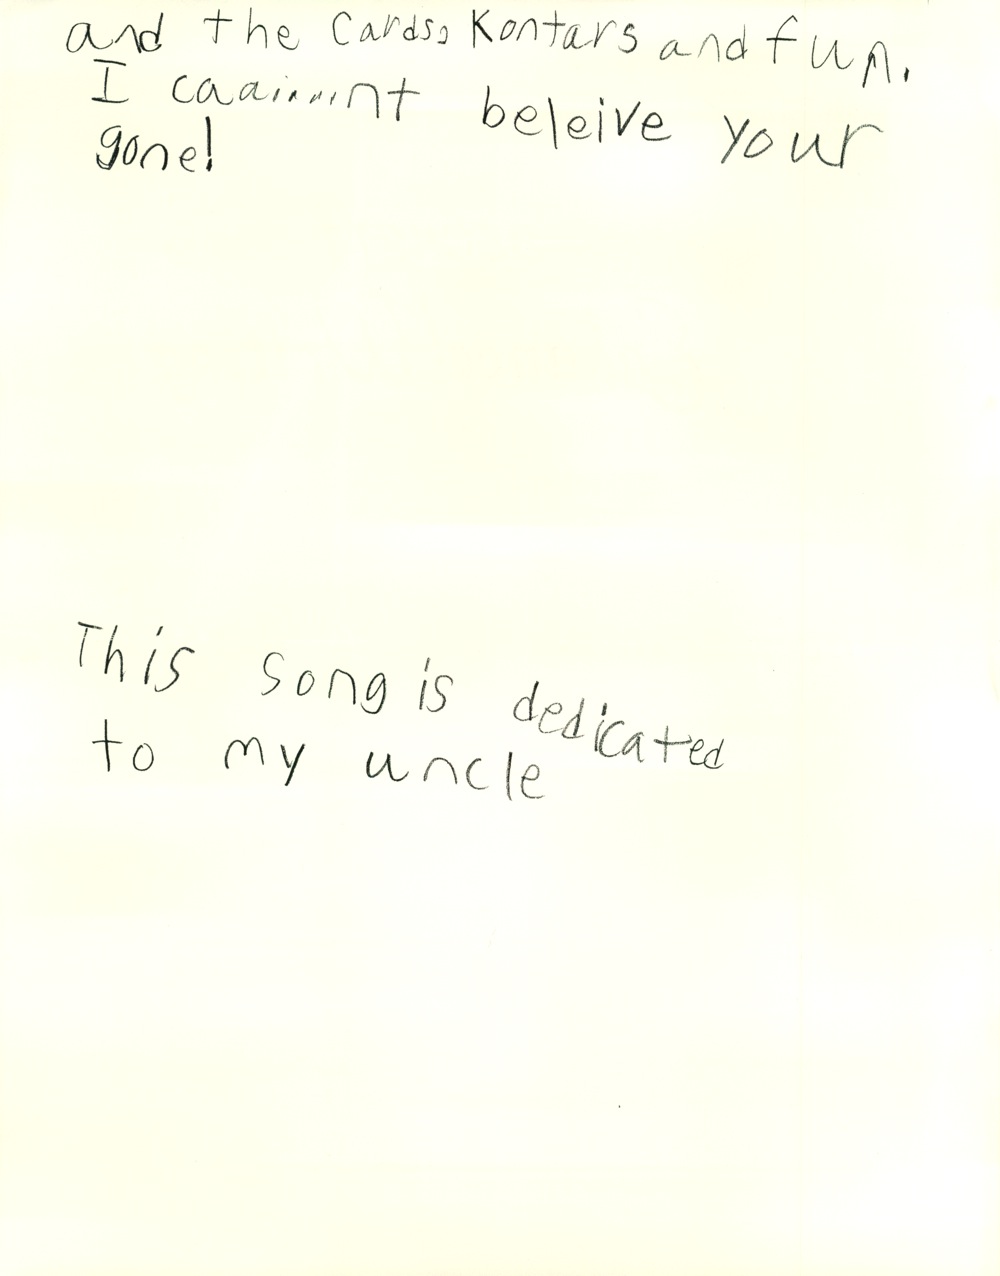 and the cards, Kontars and fun.
I caaiııııınt beleive your
gone!
This song is dedicated
to my uncle